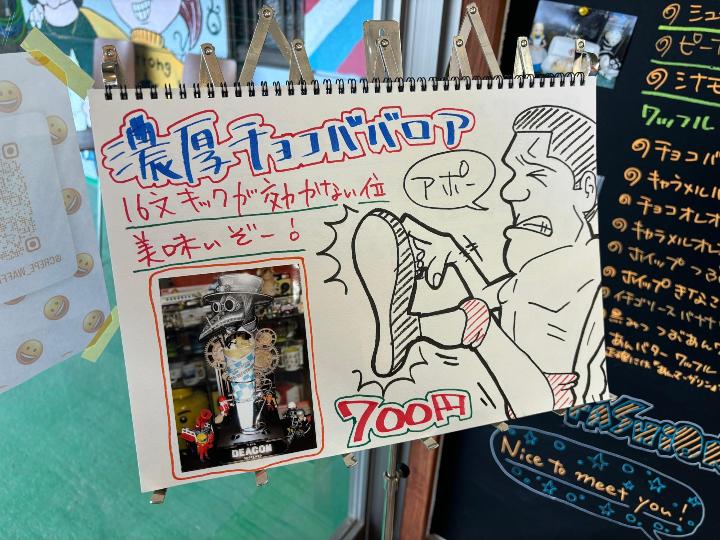 濃厚チョコババロア
16文キックが効かない位
美味いぞー!
アポー
700円
DEACON
trong
@CREPE_WAFF
のシュ
のピー
のシナモ
ワッフル
のチョコバ
のキャラメル
のチョコオレオ
のキャラメルオレ
のホイップつぶ
のホイップきなこ
のイチゴソースバナナ
の黒みつつぶあん
のあんバターワッフル
Nice to meet you!